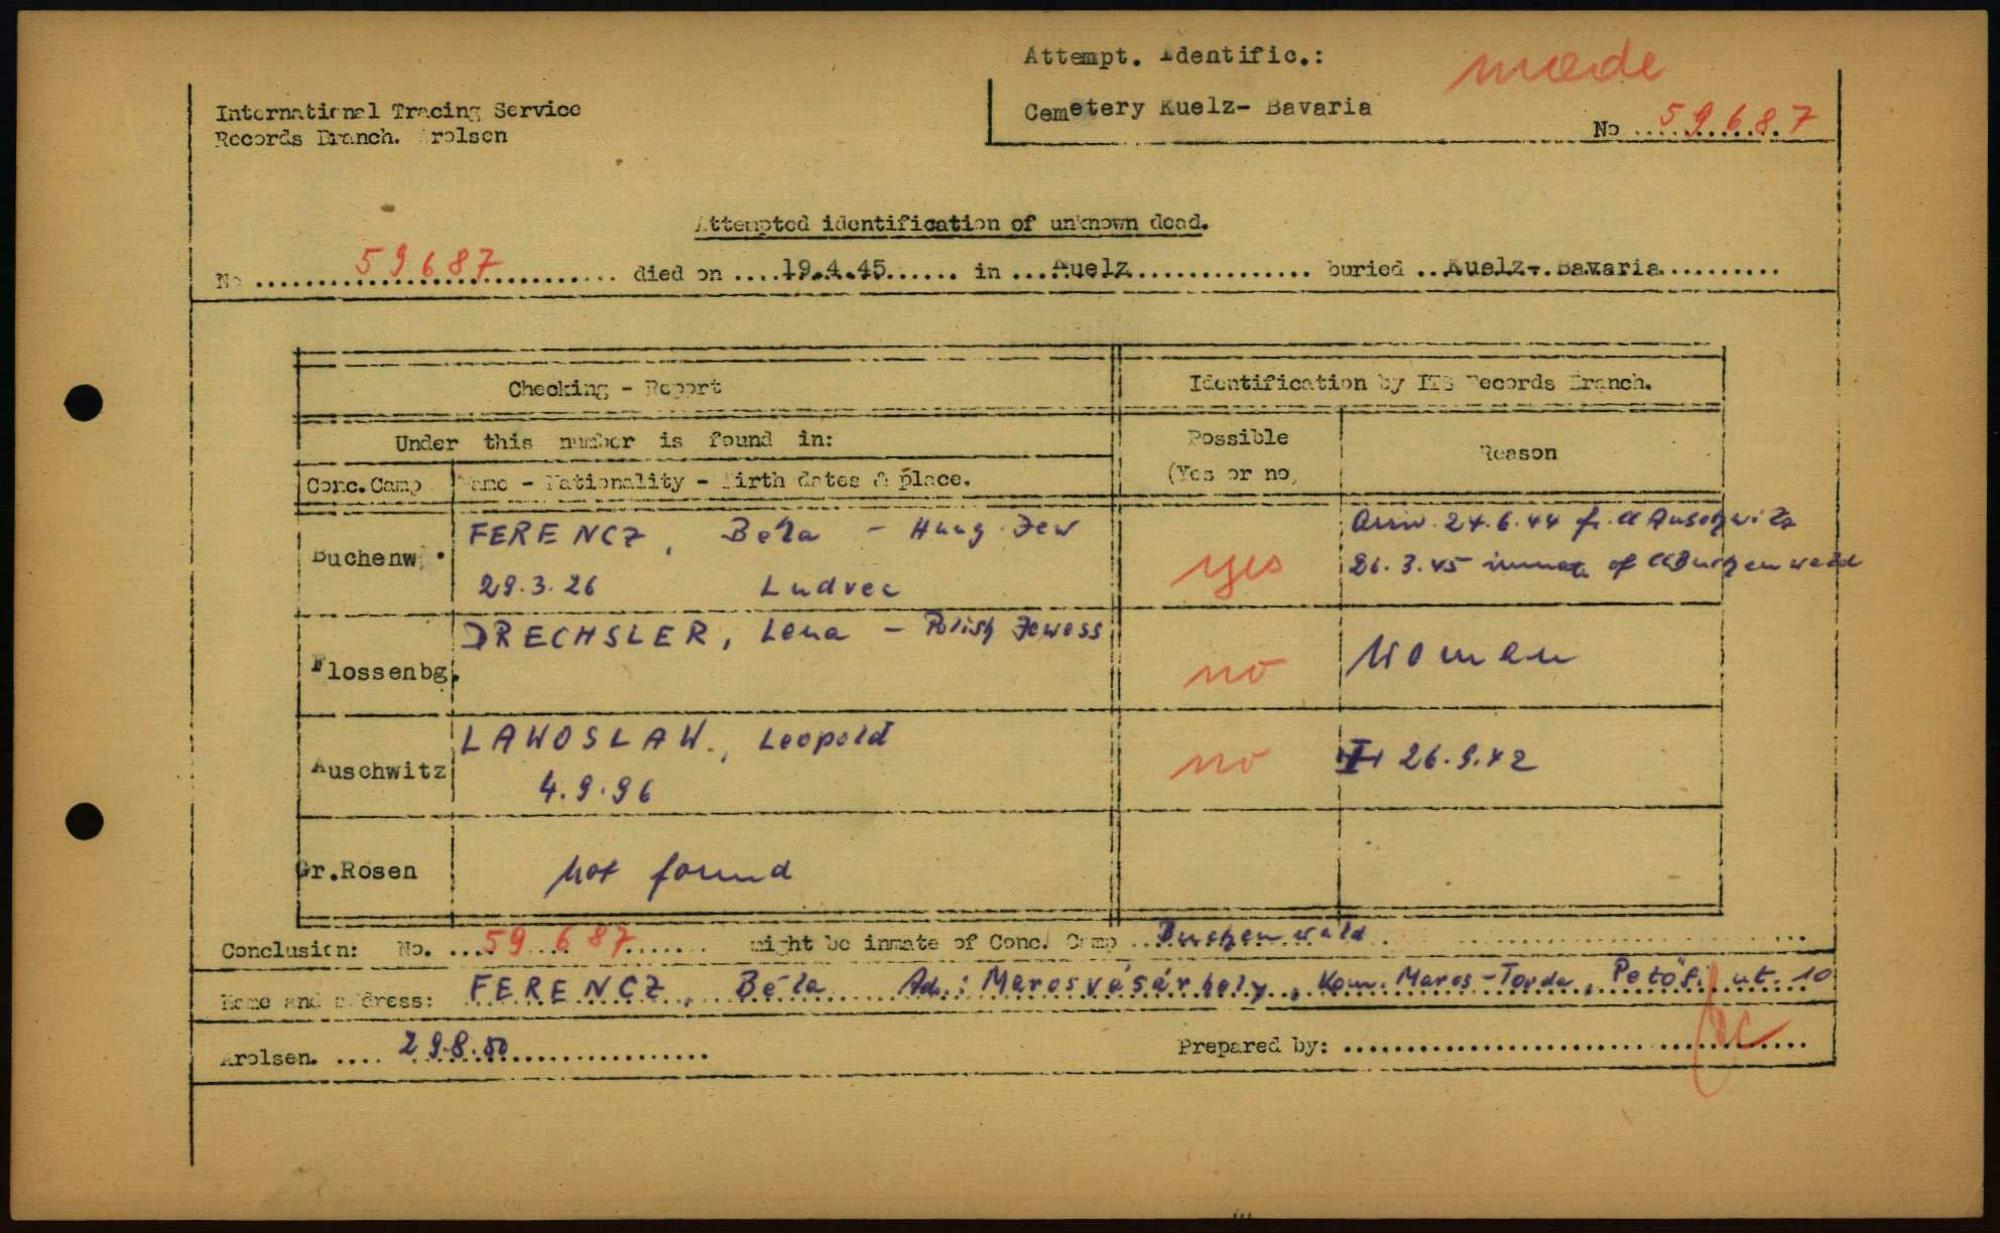 Attempt. Identific.: made
International Tracing Service
Records Branch. Arolsen
Cemetery Kuelz- Bavaria
No 59687
Attempted identification of unknown dead.
No 59687 died on 19.4.45 in Kuelz buried Kuelz-.Bavaria
Checking - Report
Identification by ITS Records Branch.
Under this number is found in:
Possible
(Yes or no)
Reason
Conc.Camp
Name - Nationality - Birth dates & place.
Buchenw.
FERENCZ, Béla - Hung. Jew
29.3.26 Ludvec
yes
Arriv. 24.6.44 fr. Cl Auschwitz
26.3.45 inmate of ClBuchenwald
Flossenbg.
DRECHSLER, Lena - Polish Jewess
no
Woman
Auschwitz
LAWOSLAW., Leopold
4.9.96
no
26.9.42
Gr.Rosen
not found
Conclusion: No. 59687 might be inmate of Conc. Camp Buchenwald
Name and address: FERENCZ, Béla Ad.: Marosvásárhely, Kom. Maros-Torda, Petöfi ut. 10
Arolsen. 29.8.50
Prepared by: